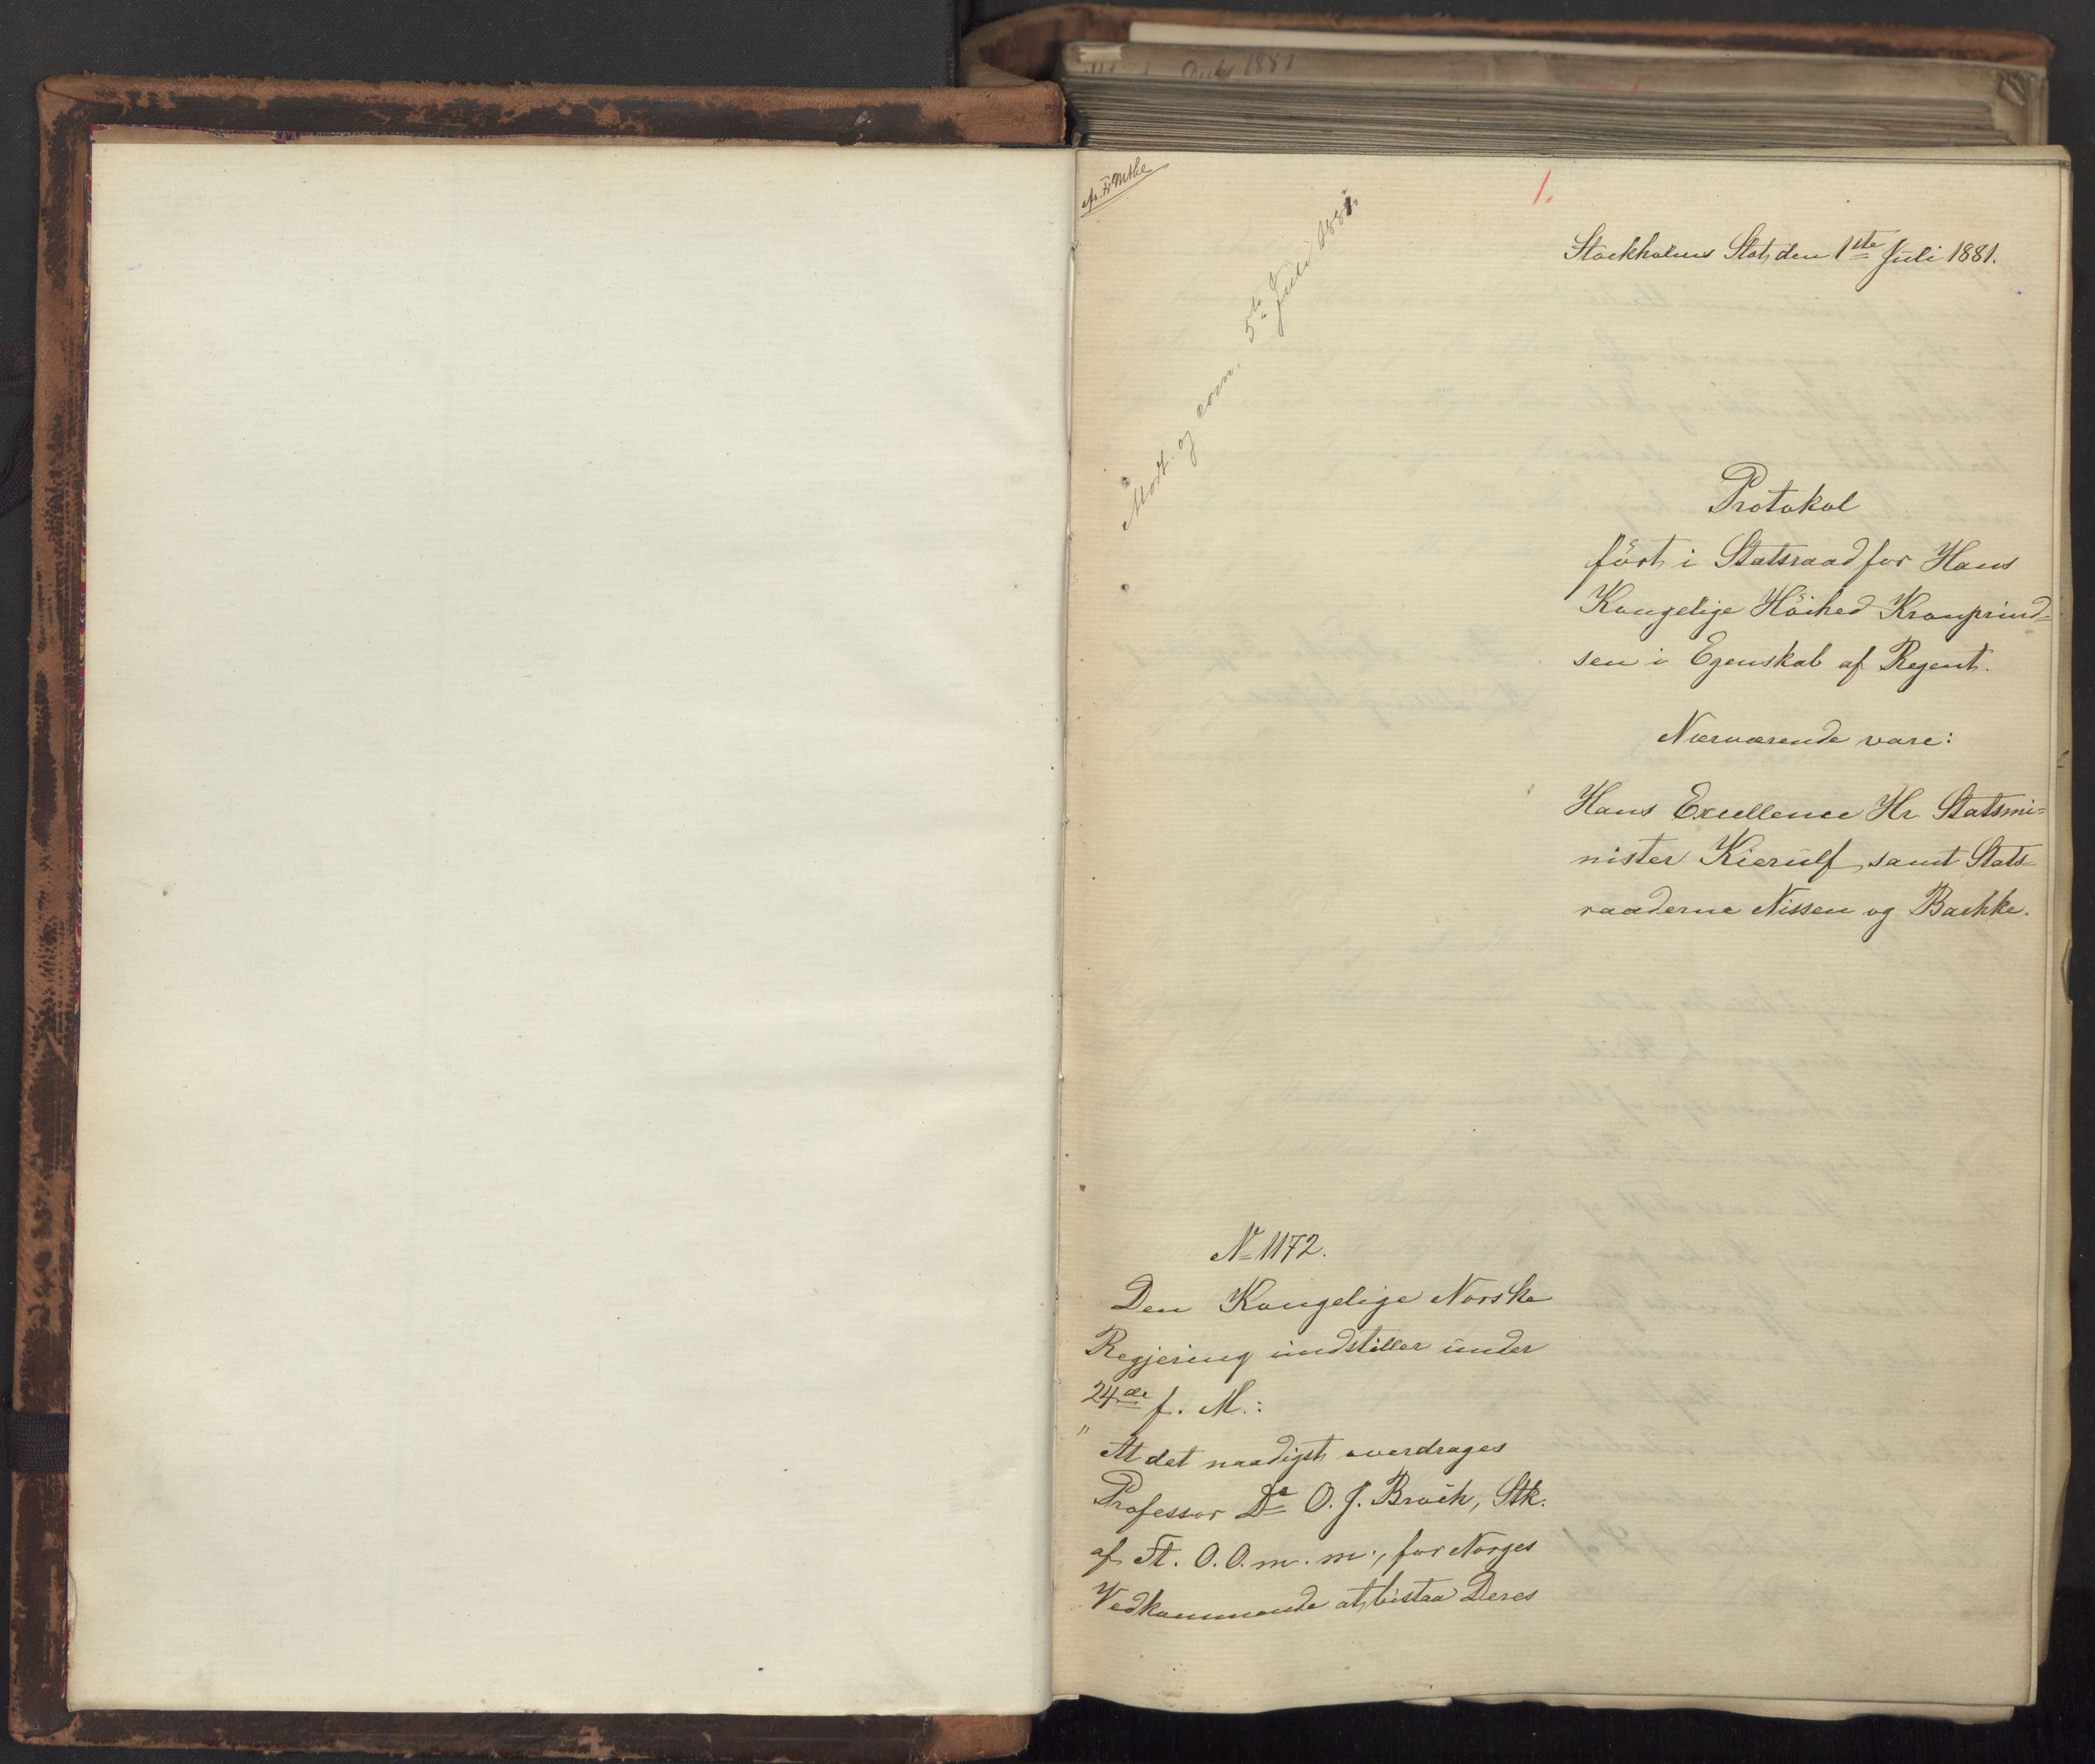 1.
Stockholms Slot, den 1ste Juli 1881.
Modt. og exm. 5te Juli 1881.
Protokol
fört i Statsraad for Hans
Kongelige Höihed Kronprind-
sen i Egenskab af Regent.
Nærværende vare:
Hans Excellence Hr. Statsmi-
nister Kierulf, samt Stats-
raaderne Nissen og Bachke.
No 1172.
Den Kongelige Norske
Regjering indstiller under
24de f. M.:
"At det naadigst overdrages
Professor Dr O. J. Broch, Stk.
af St. O. O. m. m., for Norges
Vedkommende at bistaa Deres